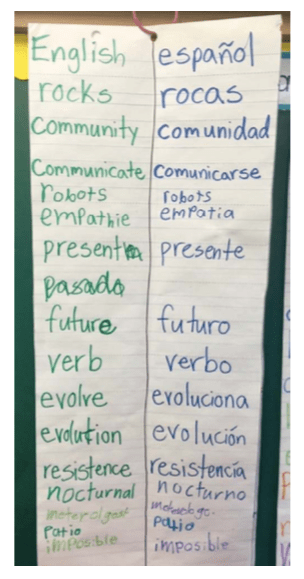 English español
rocks rocas
Community comunidad
Communicate comunicarse
robots robots
empathie empatia
present presente
pasado
future futuro
verb verbo
evolve evoluciona
evolution evolución
resistence resistencia
nocturnal nocturno
patio patio
imposible imposible